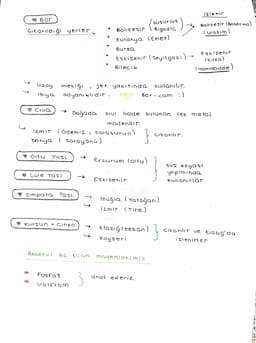 * BOR
Çıkarıldığı yerler
• Balıkesir (Susurluk Bigadiç)
• Kütahya (Emet)
• Bursa
• Eskişehir (Seyitgazi)
• Bilecik
işlenir
→ Balıkesir (Bandırma)
→ Eskişehir (Kırka)
(hammadde)
↳ Uzay mekiği, jet yakıtında kullanılır.
↳ Isıya dayanıklıdır. Bor-cam :)
* Civa → Doğada sıvı halde bulunan tek metal
madendir.
↳ İzmir (Ödemiş,
Konya (Sarayönü)
çıkarılır.
* Oltu Taşı → Erzurum (Oltu)
* Lüle Taşı → Eskişehir
süs eşyası
yapımında
kullanılırlar.
* Zımpara Taşı → Muğla (Yatağan)
→ İzmir (Tire)
* Kurşun + Çinko → Elazığ (Keban)
→ Kayseri
Çıkarılır ve Elazığ'da
işlenirler
Rezervi Az Olan Madenlerimiz
* Fosfat
* Volfram
ithal ederiz